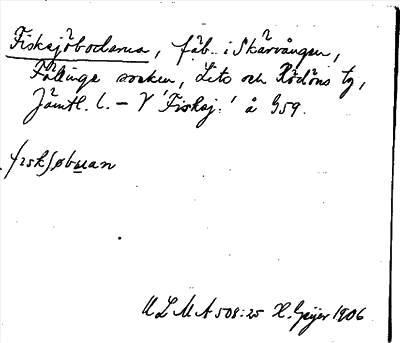 Fisksjöbodarna, fäb. i Skärvången,
Föllinge socken, Lits och Rödöns tg,
Jämtl. l. – V 'Fisksj.' å G59.
fisksøbuan
ULMA 508:25 H. Geijer 1906